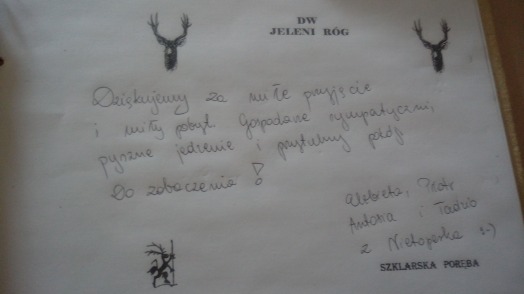 DW
JELENI RÓG
Dziękujemy za miłe przyjęcie
i miły pobyt. Gospodarze sympatyczni,
pyszne jedzenie i przytulny
Do zobaczenia!
Elżbieta, Piotr
Antonia i Tadzio
z Nietoperka :-)
SZKLARSKA PORĘBA